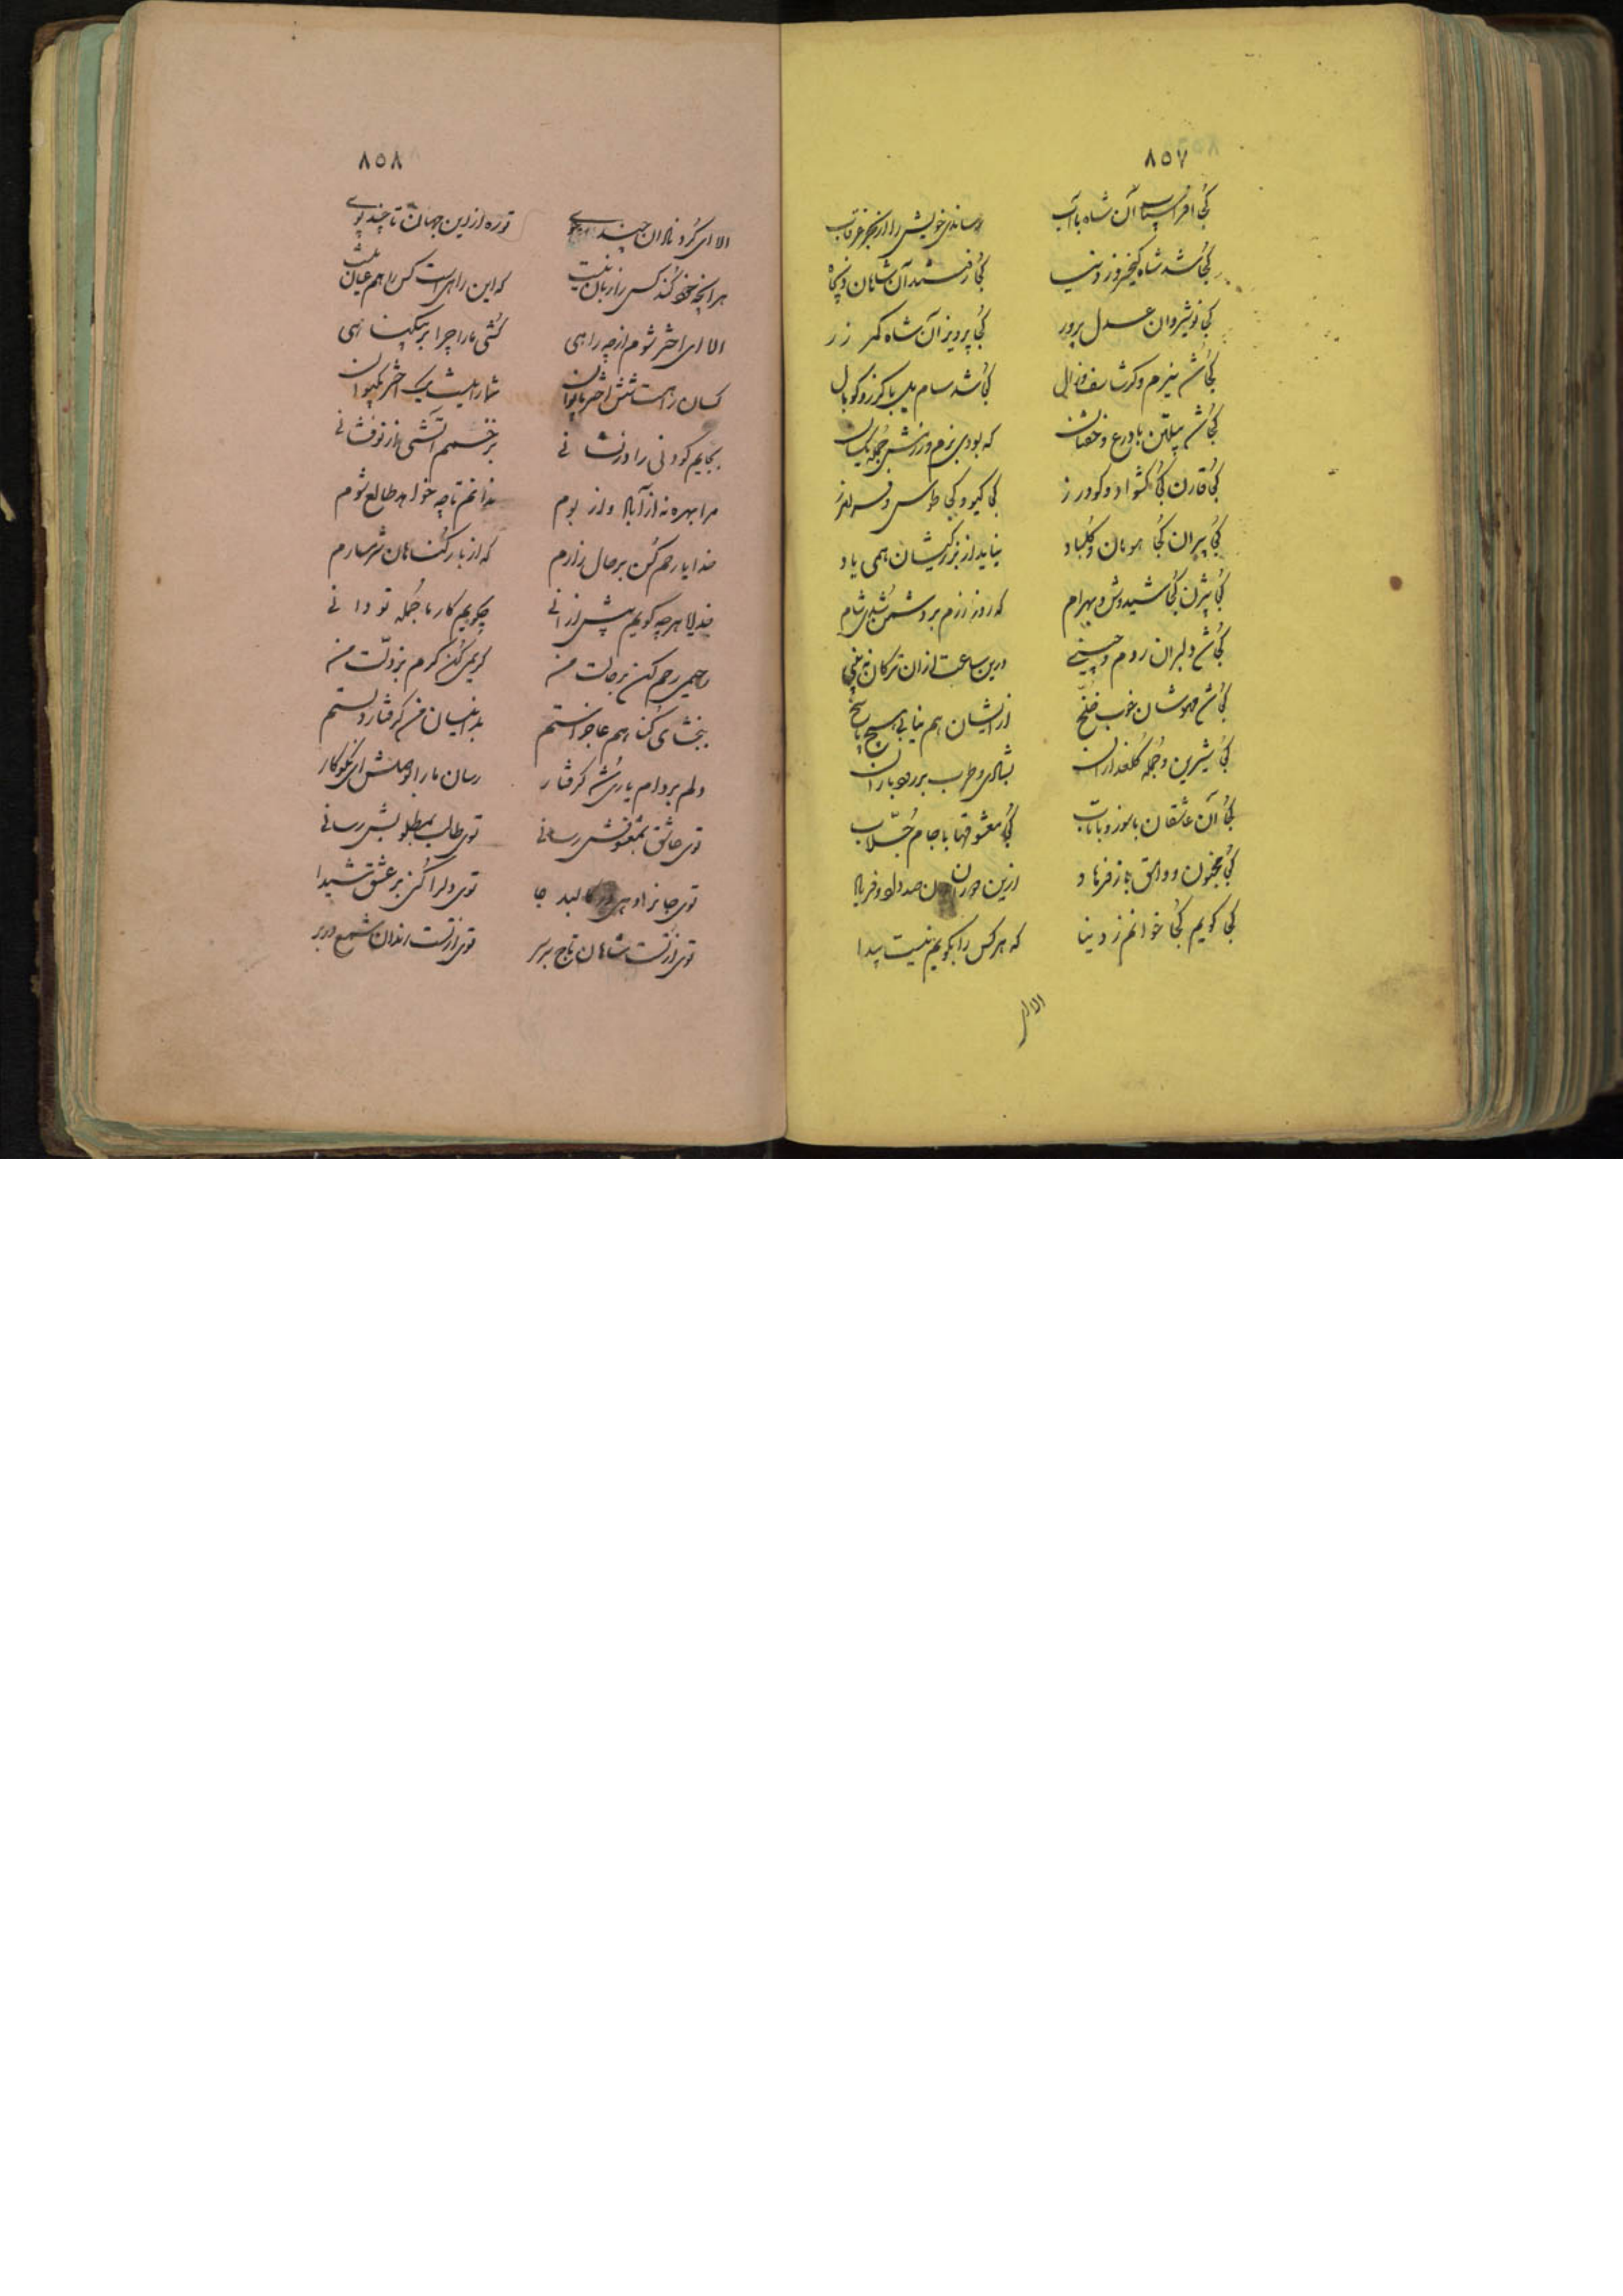 ۸۵۷
کجا افراسیاب آن شاه با آب رساندی خویش را از بحر غرقاب
کجا شد شاه کیخسرو ز دنیا کجا رفتند آن شاهان
کجا نوشیروان عدل پرور کجا پرویز آن شاه کمر زر
کجا شد نیرم و کرشاسف و زال کجا شد سام یل با کرز و کوپال
کجا شد پیلتن با درع و خفتان که بودی بزم و رزمش جمله یکسان
کجا قارن کجا کشواد و کودرز کجا کیو و کجا طوس و فربرز
کجا پیران کجا هومان و کلباد نیاید از بزرکیشان همی یاد
کجا بیژن کجا شیدوش و بهرام که روز رزم بر دشمن شدی شام
کجا شد دلبران روم و چینی درین ساعت ازان ترکان نه بینی
کجا شد مهوشان خوب خلخ از ایشان هم نیابی هیچ پاسخ
کجا شیرین و جمله کلعذاران بشادی و طرب بر رود باران
کجا آن عاشقان با سوز و با تاب کجا معشوقها با جام جلاب
کجا مجنون و وامق باز فرهاد ازین دوران دون صد داد و فریاد
کجا کویم کجا خوانم ز دنیا که هر کس را بکویم نیست پیدا
الا ای
۸۵۸
الا ای کرد نالان چند توره از این جهان تا چند پوی
هر انچه خود کند کس را زیان نیست که این راهیست کس را هم عیان نیست
الا ای اختر شوم از چه راهی کشی ما را چرا بر بیکناهی
کسان را هست شش اختر شما را نیست یک اختر بکیوان
بجایم کودنی را در نشانی بر خشمم آتشی از نو فشانی
مرا بهره نه از آباد و از بوم ندانم تا چه خواهد طالع شوم
خدایا رحم کن بر حال زارم که از بار کناهان شرمسارم
خدایا هر چه کویم پیش ازانی چکویم کار ما جمله تو دانی
رحیمی رحم کن بر حالت من کریمی کن کرم بر ذلت من
ببخشای کناهم عاجز استم من کرفتار دستم
دلم بر دام یاری شد کرفتار رسان ما را بوصلش ای نکوکار
توی عاشق بمعشوقش رسانی توی طالب بمطلوبش رسانی
توی جانرا دهی در کالبد جا توی دلرا کنی بر عشق شیدا
توی از تست شاهان تاج بر سر توی از تست رندان شمع در بر